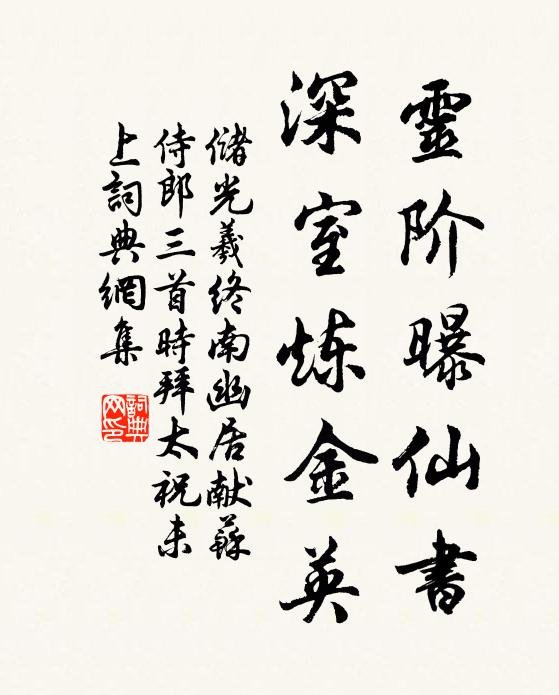 靈阶曝仙書
深室炼金英
儲光羲終南幽居献蘇
侍郎三首時拜太祝未
上詞典網集
詞典网印